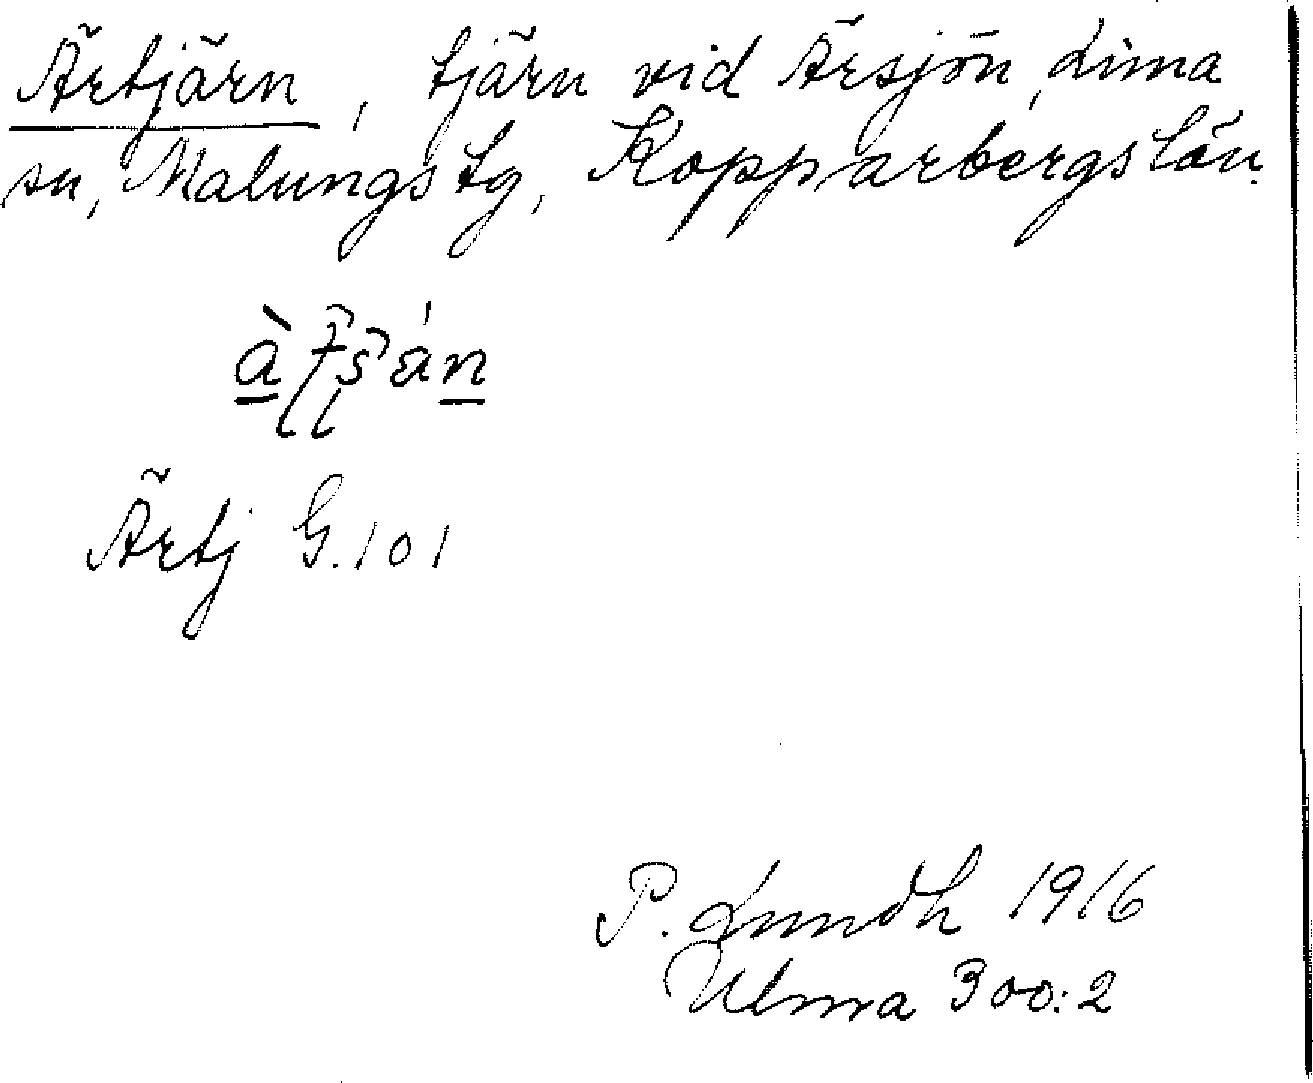 Ärtjärn, tjärn vid Ärsjön, Lima
sn, Malungs tg, Kopparbergs län.
Ärtj G. 101
P. Lundh 1916
Ulma 300:2